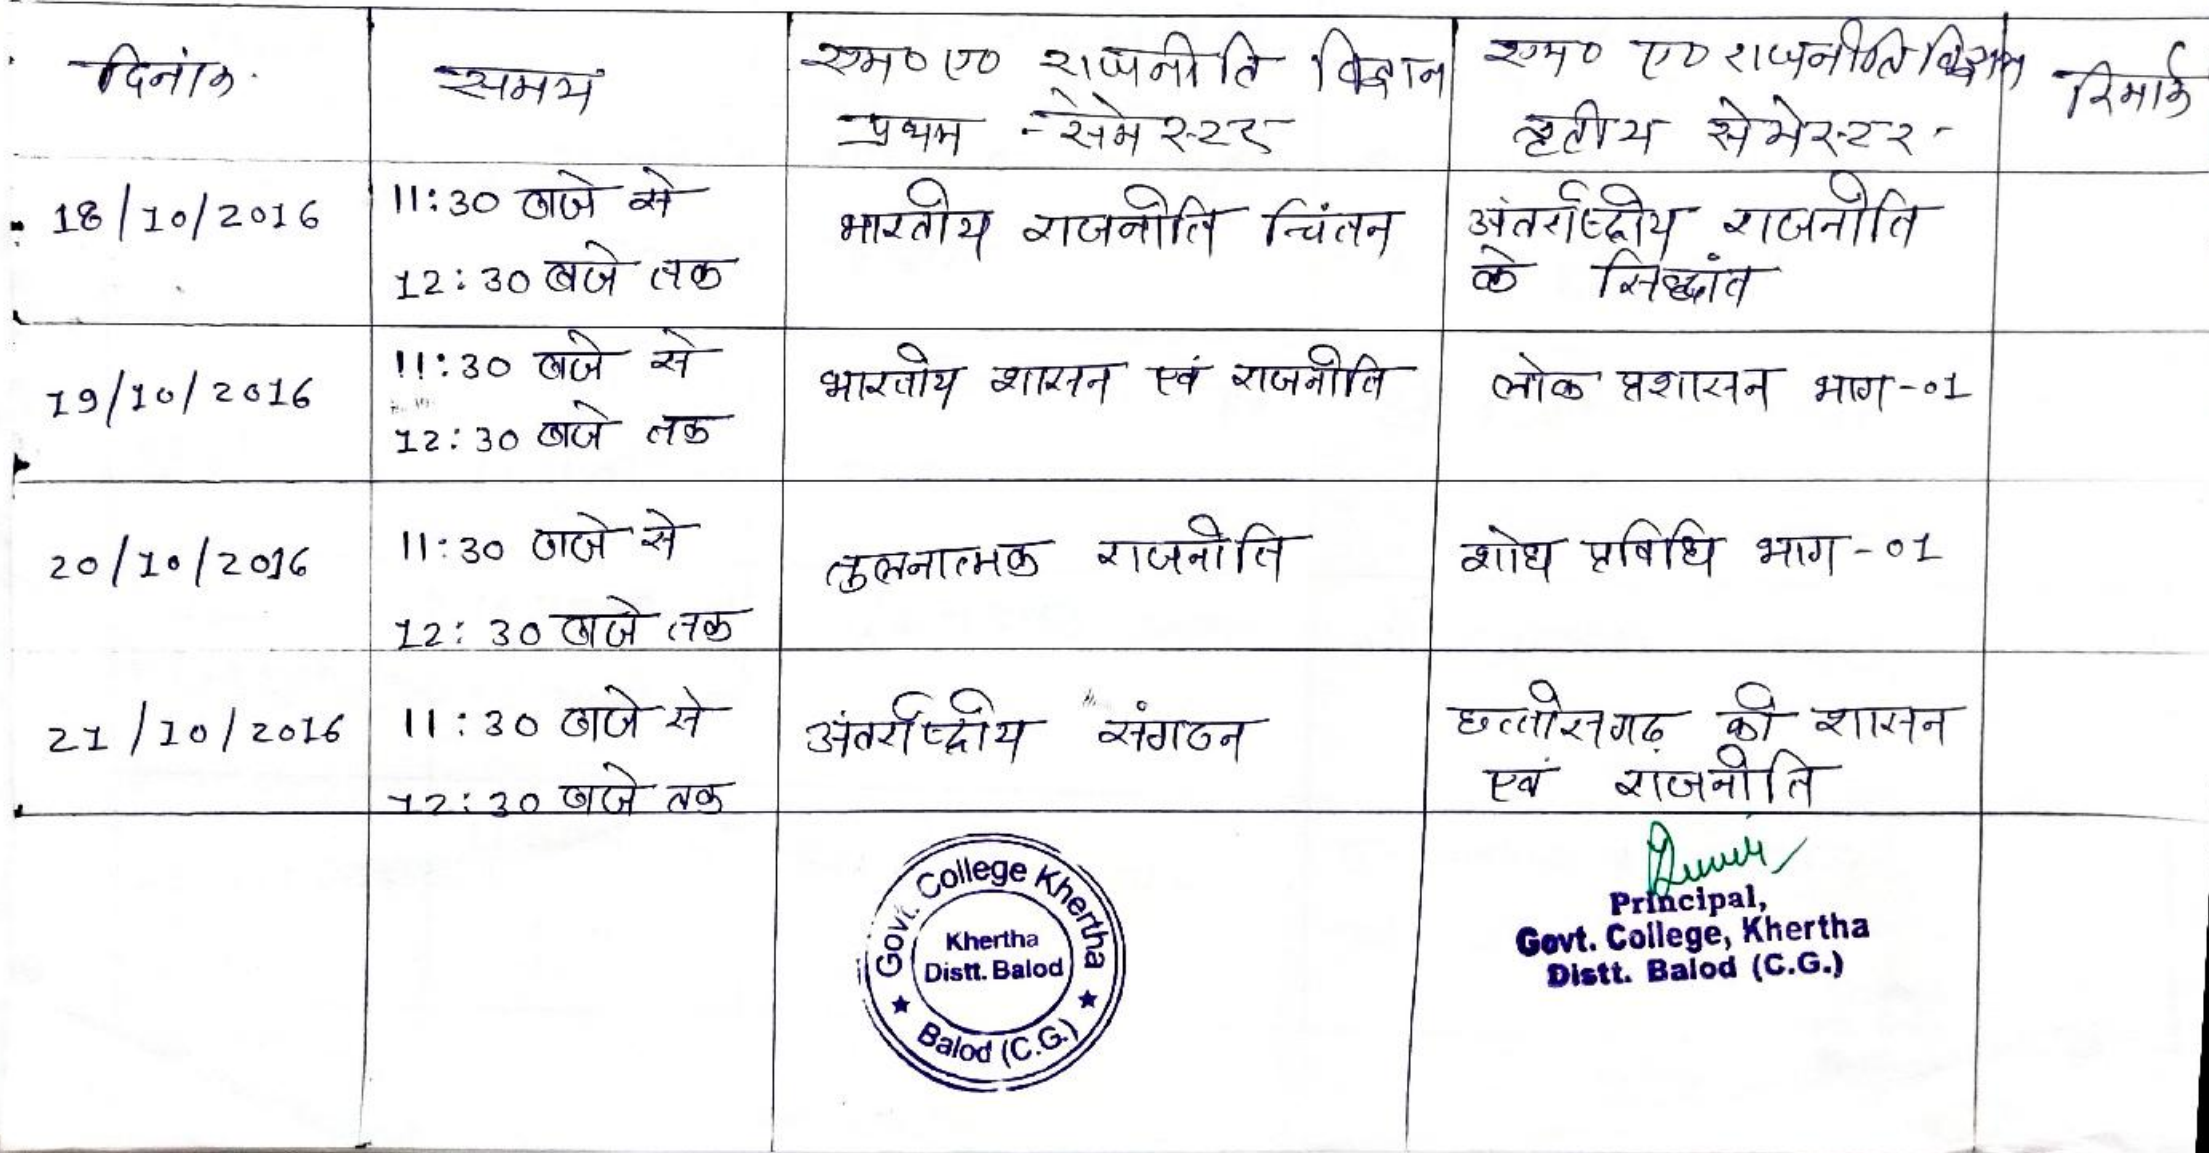 दिनांक
समय
एम० ए० राजनीति विज्ञान
प्रथम - सेमेस्टर
एम० ए० राजनीति विज्ञान
तृतीय सेमेस्टर -
रिमार्क
18/10/2016
11:30 बजे से
12:30 बजे तक
भारतीय राजनीति चिंतन
अंतर्राष्ट्रीय राजनीति
के सिद्धांत
19/10/2016
11:30 बजे से
12:30 बजे तक
भारतीय शासन एवं राजनीति
लोक प्रशासन भाग-01
20/10/2016
11:30 बजे से
12:30 बजे तक
तुलनात्मक राजनीति
शोध प्रविधि भाग-01
21/10/2016
11:30 बजे से
12:30 बजे तक
अंतर्राष्ट्रीय संगठन
छत्तीसगढ़ की शासन
एवं राजनीति
Govt. College Khertha
Khertha
Distt. Balod
Balod (C.G.)
Principal,
Govt. College, Khertha
Distt. Balod (C.G.)